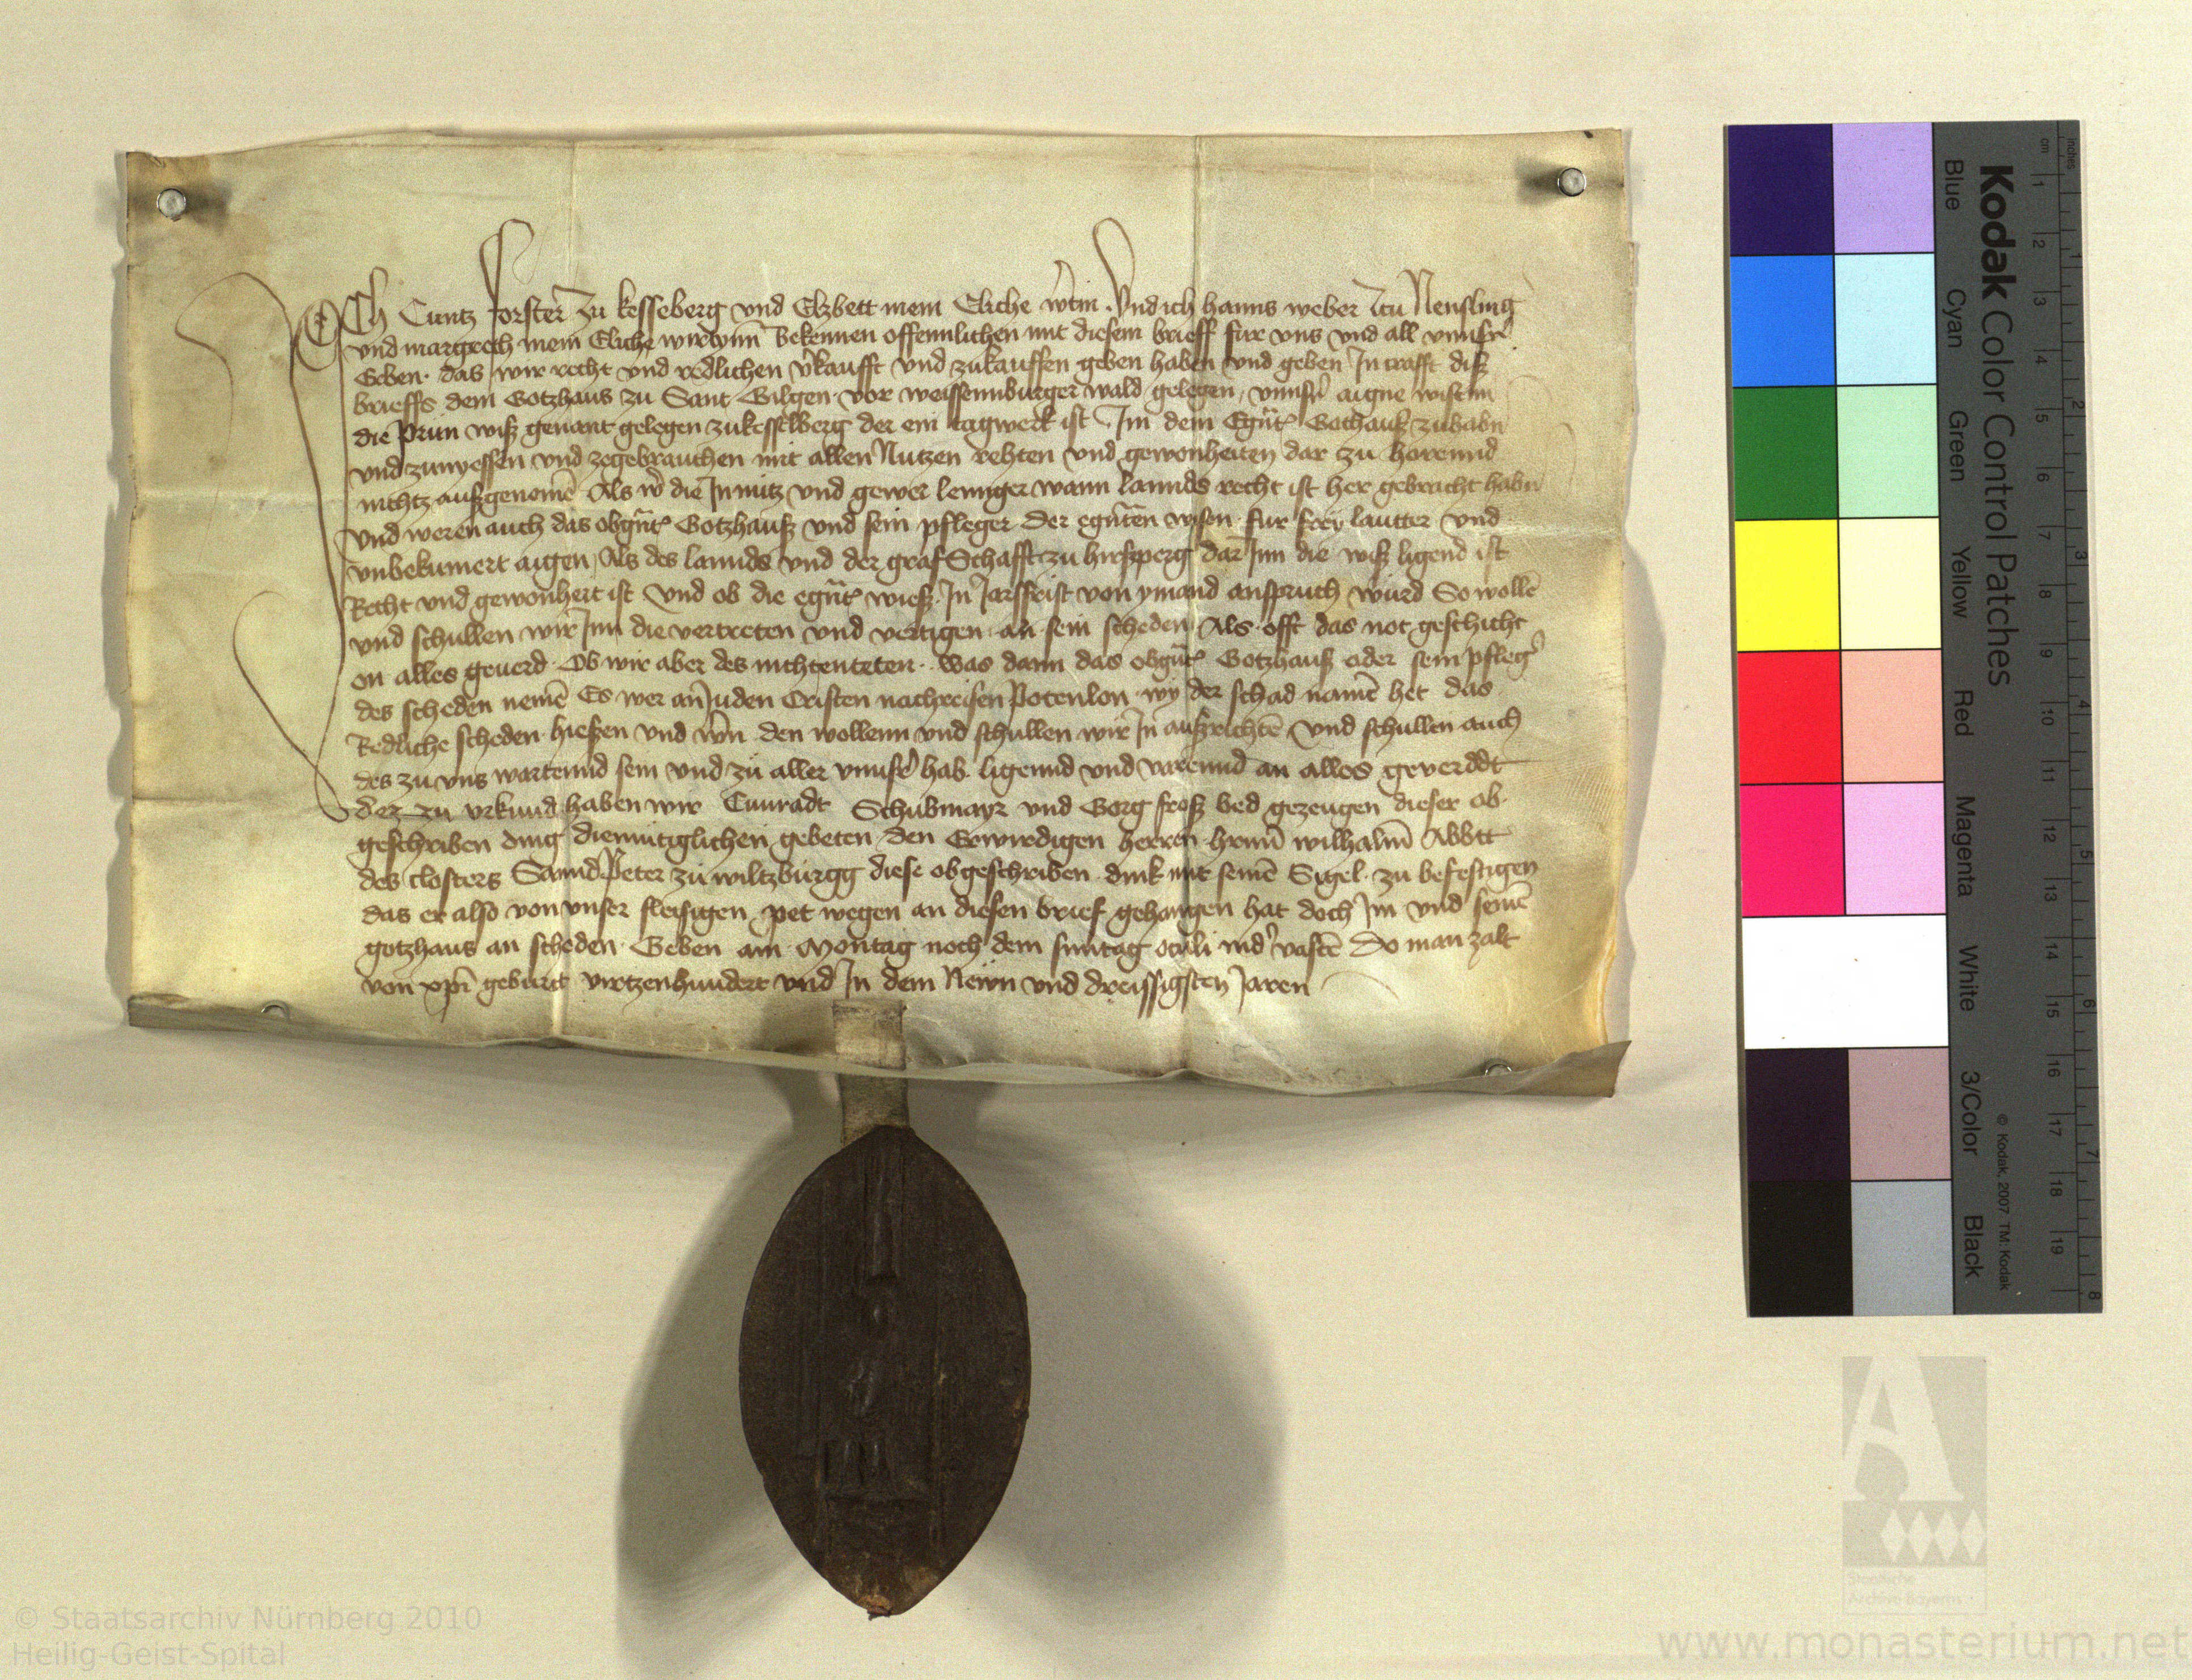 Ich Cuntz Forster zu kesseberg vnd Elzbett mein Eliche wirtin Vnd ich hanns weber zcu Nensling
vnd margreth mein Eliche wirtynn bekennen offennlichen mit diesem brieff fur vns vnd all vnnser
Erben das wir recht vnd redlichen v'kaufft vnd zukauffen geben haben vnd geben In crafft ditz
brieffs dem Gotzhaus zu Sant Gilgen vor weissennburger wald gelegen vnnser aigne wisenn
die Prun wisz genant gelegen zu kesselberg der ein tagwerk ist Im dem Egnt' Gothausz zuhabn
vnd zunyessen vnd zegebrauchen mit allen Nutzen rehten vnd gewonheiten dar zu horennd
nichtz auszgenomē Als die In nutz vnd gewer lennger wann lannds recht ist her gebracht habn
vnd weren auch das obgnt' Gotzhausz vnd sein pfleger der egnten wisen fur frey lautter vnd
vnbekumert aigen Als des lannds vnd der grafSchafft zu hirszperg dar Inn die wisz ligend ist
Recht vnd gewonheit ist vnd ob die egnt' wiesz In Jarsfrist von ymand anspruch wurd So wollē
vnd schullen wir Inn die vertreten vnd vertigen an sein scheden Als offt das not geschicht
on alles geuerd Ob wir aber des nicht enteten was dann das obgnt' Gotzhausz oder sein pfleg'
des scheden nemē Es wer an Juden Cristen nachreisen Potenlon wy der schad namē het das
Redliche scheden hieszen vnd wern den wollenn vnd schullen wir In auszrichtē vnd schullen auch
des zu vns wartennd sein vnd zu aller vnnser hab ligennd vnd varennd an alles geuerddt
dez zu vrkund haben wir Cunradt Schubmayr vnd Gorg frosz bed gezeugen dieser ob
geschriben ding diemutiglichen gebeten den Erwirdigen herren hrnn wilhalm Abbtt
des closters Sannd Peter zu wiltzburgg diese obgeschriben dink mit seinē Sigel zu befestigen
das er also von vnser fleisigen pet wegen an diesen brief gehangen hat doch Im vnd seinē
gotzhaus an scheden Geben am Montag noch dem suntag oculi in d' vastē Do man zalt
von xpi geburt virtzenhundert vnd In dem Newn vnd dreissigsten Jaren
Kodak Color Control Patches
Blue Cyan Green Yellow Red Magenta White 3/Color Black
inches 1 2 3 4 5 6 7 8
cm 1 2 3 4 5 6 7 8 9 10 11 12 13 14 15 16 17 18 19
© Kodak, 2007 TM: Kodak
Staatliche
Archive Bayerns
© Staatsarchiv Nürnberg 2010
Heilig-Geist-Spital
www.monasterium.net